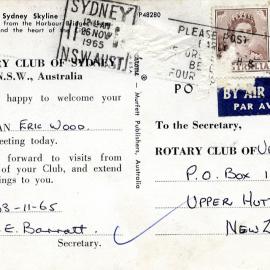 Sydney Skyline
P48280
from the Harbour Bridge
and the heart of the
SYDNEY
1965
NSW·AUST
PLEASE POST
EARLY
BE
FOUR
BY AIR
PAR AV
RY CLUB OF SYDNEY
N.S.W., Australia
happy to welcome your
AN ERIC WOOD.
eeting today.
forward to visits from
of your Club, and extend
3-11-65
E. Barratt
Secretary.
Murfett Publishers, Australia
PO
To the Secretary,
ROTARY CLUB OF
P.O. BOX 1
UPPER HUTT
NEW Z